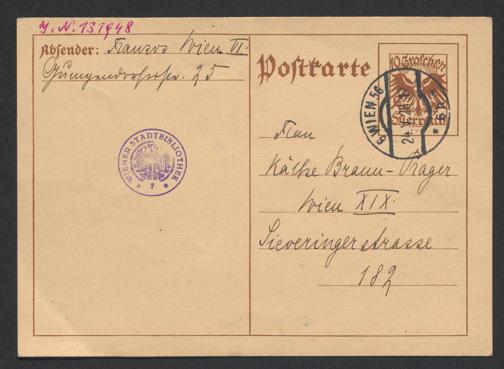 J. N. 131948
Absender: Franzos Wien VI.
Gumpendorferstr. 25
Postkarte
10 Groschen
Österreich
6 WIEN 56
* 6b *
WIENER STADTBIBLIOTHEK
* 7 *
Frau
Käthe Braun-Prager
Wien XIX.
Sieveringerstrasse
182